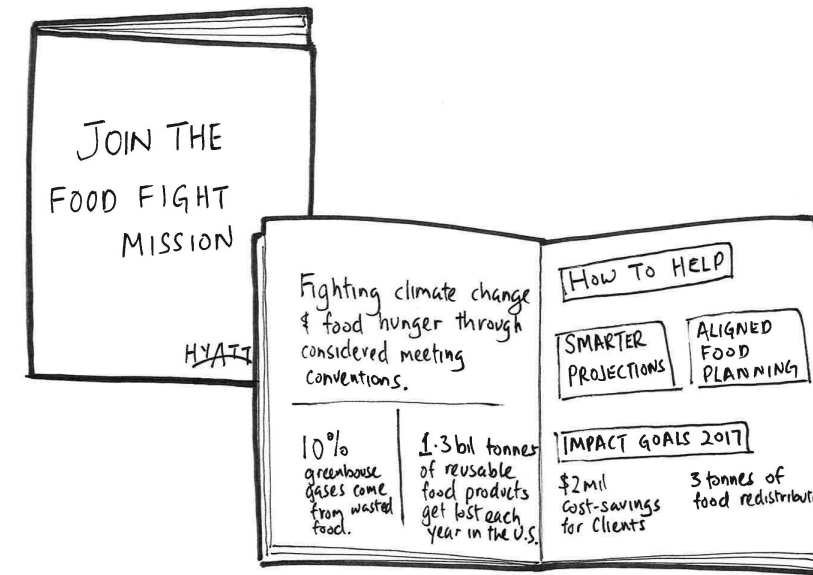 JOIN THE
FOOD FIGHT
MISSION
HYATT
Fighting climate change
& food hunger through
considered meeting
conventions.
10%
greenhouse
gases come
from wasted
food.
1.3 bil tonnes
of reusable
food products
get lost each
year in the U.S.
HOW TO HELP
SMARTER
PROJECTIONS
ALIGNED
FOOD
PLANNING
IMPACT GOALS 2017
$2mil
cost-savings
for Clients
3 tonnes of
food redistributi